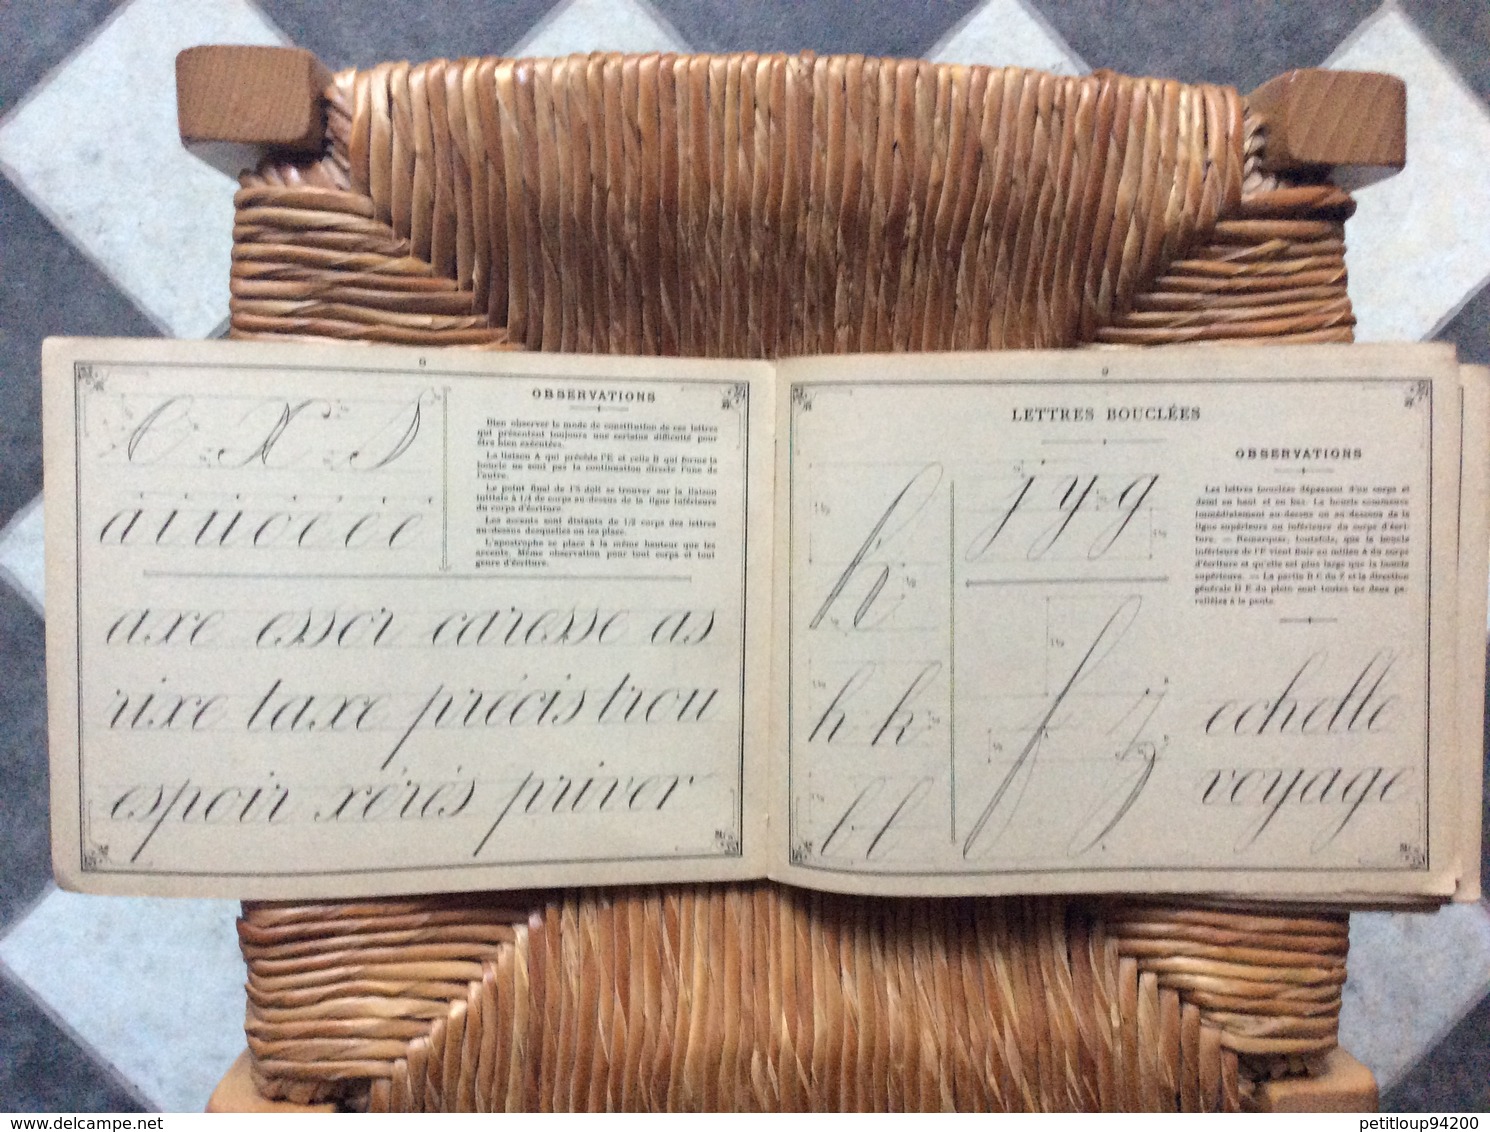 8
OBSERVATIONS
Bien observer le mode de constitution de ces lettres
qui présentent toujours une certaine difficulté pour
être bien exécutées.
La liaison A qui précède l'E et celle B qui forme la
boucle ne sont pas la continuation directe l'une de
l'autre.
Le point final de l'S doit se trouver sur la liaison
initiale à 1/4 de corps au-dessus de la ligne inférieure
du corps d'écriture.
Les accents sont distants de 1/2 corps des lettres
au-dessus desquelles on les place.
L'apostrophe se place à la même hauteur que les
accents. Même observation pour tout corps et tout
genre d'écriture.
e x s
axe essor caresse as
rixe taxe précis trou
espoir xérés priver
9
LETTRES BOUCLÉES
OBSERVATIONS
Les lettres bouclées dépassent d'un corps et
demi en haut et en bas. La boucle commence
immédiatement au-dessus ou au-dessous de la
ligne supérieure ou inférieure du corps d'écri-
ture. — Remarquer, toutefois, que la boucle
inférieure de l'F vient finir au milieu A du corps
d'écriture et qu'elle est plus large que la boucle
supérieure. — La partie B C du Z et la direction
générale D E du plein sont toutes les deux pa-
rallèles à la pente.
h
j y g
h k
f z
b l
echelle
voyage
www.delcampe.net
petitloup94200